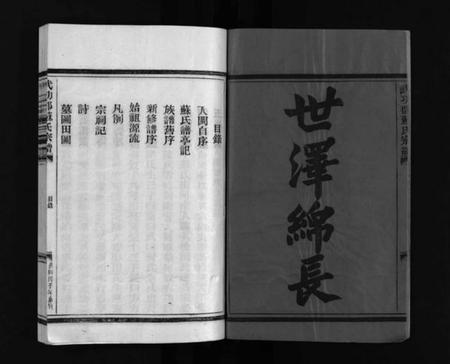 世澤綿長
目錄
入閩自序
蘇氏譜亭記
族譜舊序
新修譜序
始祖源流
凡例
宗祠記
詩
墓圖田圖
蘇氏宗譜
目錄